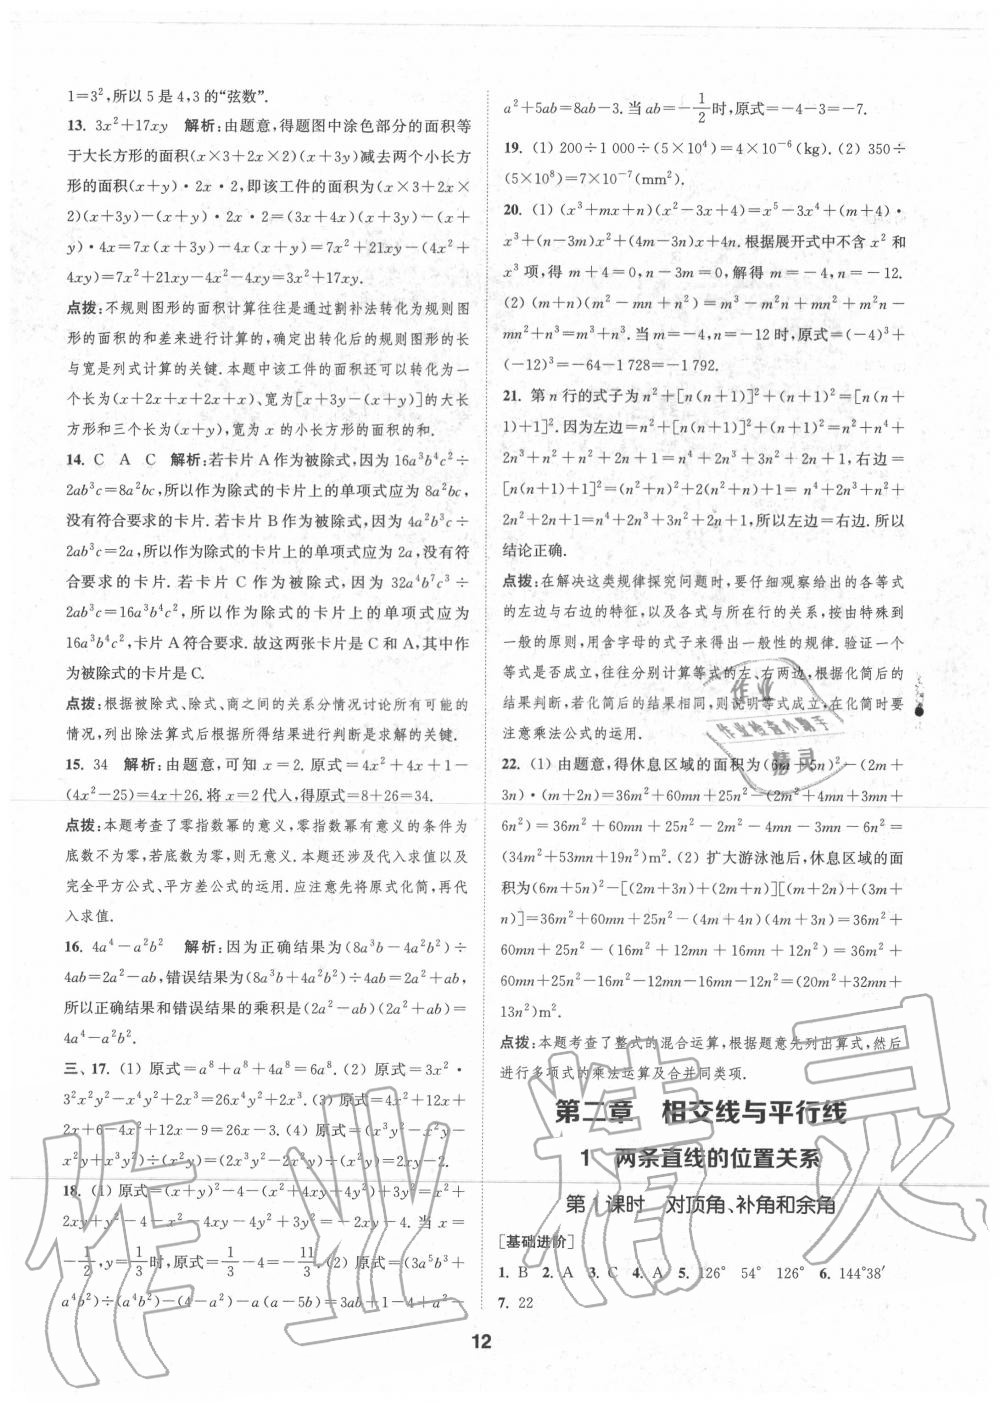 1=3²,所以 5 是 4,3 的“弦数”.
13. 3x²+17xy 解析:由题意,得题图中涂色部分的面积等
于大长方形的面积(x×3+2x×2)(x+3y)减去两个小长方
形的面积(x+y)·2x·2,即该工件的面积为(x×3+2x×
2)(x+3y)-(x+y)·2x·2=(3x+4x)(x+3y)-(x+
y)·4x=7x(x+3y)-4x(x+y)=7x²+21xy-(4x²+
4xy)=7x²+21xy-4x²-4xy=3x²+17xy.
点拨:不规则图形的面积计算往往是通过割补法转化为规则图
形的面积的和差来进行计算的,确定出转化后的规则图形的长
与宽是列式计算的关键.本题中该工件的面积还可以转化为一
个长为(x+2x+x+2x+x)、宽为[x+3y-(x+y)]的大长
方形和三个长为(x+y),宽为 x 的小长方形的面积的和.
14. C A C 解析:若卡片 A 作为被除式,因为 16a³b⁴c²÷
2ab³c=8a²bc,所以作为除式的卡片上的单项式应为 8a²bc,
没有符合要求的卡片.若卡片 B 作为被除式,因为 4a²b³c÷
2ab³c=2a,所以作为除式的卡片上的单项式应为 2a,没有符
合要求的卡片.若卡片 C 作为被除式,因为 32a⁴b⁷c³÷
2ab³c=16a³b⁴c²,所以作为除式的卡片上的单项式应为
16a³b⁴c²,卡片 A 符合要求.故这两张卡片是 C 和 A,其中作
为被除式的卡片是 C.
点拨:根据被除式、除式、商之间的关系分情况讨论所有可能的
情况,列出除法算式后根据所得结果进行判断是求解的关键.
15. 34 解析:由题意,可知 x=2.原式=4x²+4x+1-
(4x²-25)=4x+26.将 x=2 代入,得原式=8+26=34.
点拨:本题考查了零指数幂的意义,零指数幂有意义的条件为
底数不为零,若底数为零,则无意义.本题还涉及代入求值以及
完全平方公式、平方差公式的运用.应注意先将原式化简,再代
入求值.
16. 4a⁴-a²b² 解析:因为正确结果为(8a³b-4a²b²)÷
4ab=2a²-ab,错误结果为(8a³b+4a²b²)÷4ab=2a²+ab,
所以正确结果和错误结果的乘积是(2a²-ab)(2a²+ab)=
4a⁴-a²b².
三、17. (1) 原式=a⁸+a⁸+4a⁸=6a⁸. (2) 原式=3x²·
3²x²y²-x²y²+2x³=26x⁴y²+2x³. (3) 原式=4x²+12x+
2x+6-4x²+12x-9=26x-3. (4) 原式=(x³y²-x²y-
x²y+x³y²)÷(x²y)=(2x³y²-2x²y)÷(x²y)=2xy-2.
18. (1) 原式=(x+y)²-4-(x²+4xy+4y²)+3y²=x²+
2xy+y²-4-x²-4xy-4y²+3y²=-2xy-4. 当 x=
-1/2,y=1/3时,原式=1/3-4=-11/3. (2) 原式=(3a⁵b³+
a⁴b²)÷(a⁴b²)-(4-a²)-a(a-5b)=3ab+1-4+a²-
a²+5ab=8ab-3. 当 ab=-1/2时,原式=-4-3=-7.
19. (1) 200÷1 000÷(5×10⁴)=4×10⁻⁶(kg). (2) 350÷
(5×10⁸)=7×10⁻⁷(mm²).
20. (1) (x³+mx+n)(x²-3x+4)=x⁵-3x⁴+(m+4)·
x³+(n-3m)x²+(4m-3n)x+4n.根据展开式中不含 x² 和
x³ 项,得 m+4=0,n-3m=0,解得 m=-4,n=-12.
(2) (m+n)(m²-mn+n²)=m³-m²n+mn²+m²n-
mn²+n³=m³+n³.当 m=-4,n=-12 时,原式=(-4)³+
(-12)³=-64-1 728=-1 792.
21. 第 n 行的式子为 n²+[n(n+1)]²+(n+1)²=[n(n+
1)+1]².因为左边=n²+[n(n+1)]²+(n+1)²=n²+n⁴+
2n³+n²+n²+2n+1=n⁴+2n³+3n²+2n+1,右边=
[n(n+1)+1]²=(n²+n)²+2(n²+n)+1= n⁴+2n³+n²+
2n²+2n+1=n⁴+2n³+3n²+2n+1,所以左边=右边.所以
结论正确.
点拨:在解决这类规律探究问题时,要仔细观察给出的各等式
的左边与右边的特征,以及各式与所在行的关系,按由特殊到
一般的原则,用含字母的式子来得出一般性的规律.验证一个
等式是否成立,往往分别计算等式的左、右两边,根据化简后的
结果判断,若化简后的结果相同,则说明等式成立,在化简时要
注意乘法公式的运用.
22. (1) 由题意,得休息区域的面积为(6m+5n)²-(2m+
3n)·(m+2n)=36m²+60mn+25n²-(2m²+4mn+3mn+
6n²)=36m²+60mn+25n²-2m²-4mn-3mn-6n²=
(34m²+53mn+19n²)m². (2) 扩大游泳池后,休息区域的面
积为(6m+5n)²-[(2m+3n)+(2m+n)][(m+2n)+(3m+
n)]=36m²+60mn+25n²-(4m+4n)(4m+3n)=36m²+
60mn+25n²-(16m²+12mn+16mn+12n²)=36m²+
60mn+25n²-16m²-12mn-16mn-12n²=(20m²+32mn+
13n²)m².
点拨:本题考查了整式的混合运算,根据题意先列出算式,然后
进行多项式的乘法运算及合并同类项.
第二章 相交线与平行线
1 两条直线的位置关系
第 1 课时 对顶角、补角和余角
[基础进阶]
1. B 2. A 3. C 4. A 5. 126° 54° 126° 6. 144°38′
7. 22
12
作业
作业检查小帮手
精灵
作业精灵